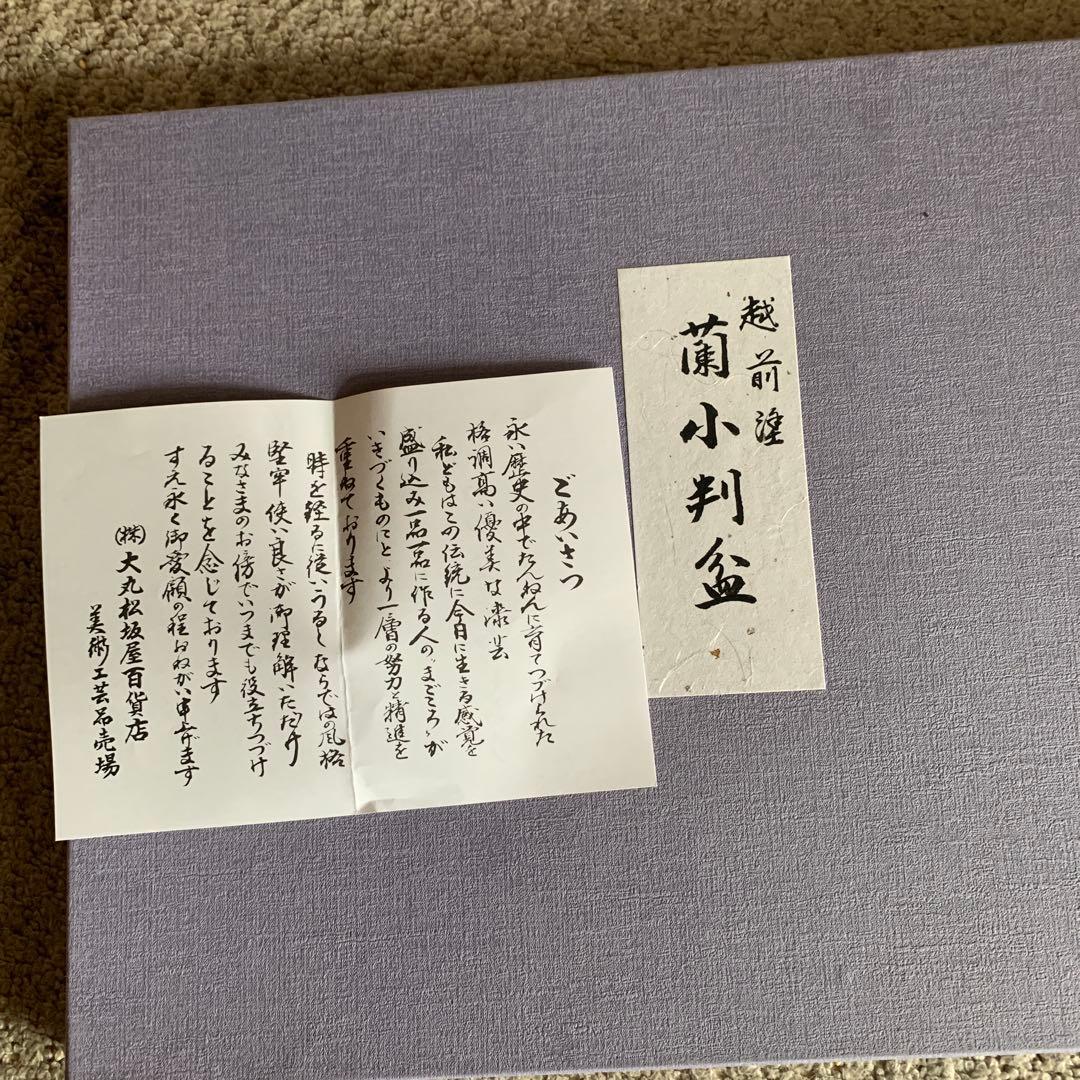 越前塗
蘭小判盆
ごあいさつ
永い歴史の中でたんねんに育てつづけられた
格調高い優美な漆芸
私どもはこの伝統に今日に生きる感覚を
盛り込み一品一品に作る人の〝まごころ〟が
いきづくものにと より一層の努力と精進を
重ねております
時を経るに従いうるしならではの風格
堅牢 使い良さが御理解いただけ
みなさまのお傍でいつまでも役立ちつづけ
ることを念じております
すえ永く御愛顧の程おねがい申上げます
㈱大丸松坂屋百貨店
美術工芸品売場